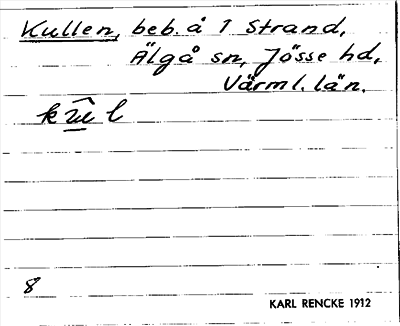 Kullen, beb. å 1 Strand,
Älgå sn, Jösse hd,
Värml. län.
8
KARL RENCKE 1912